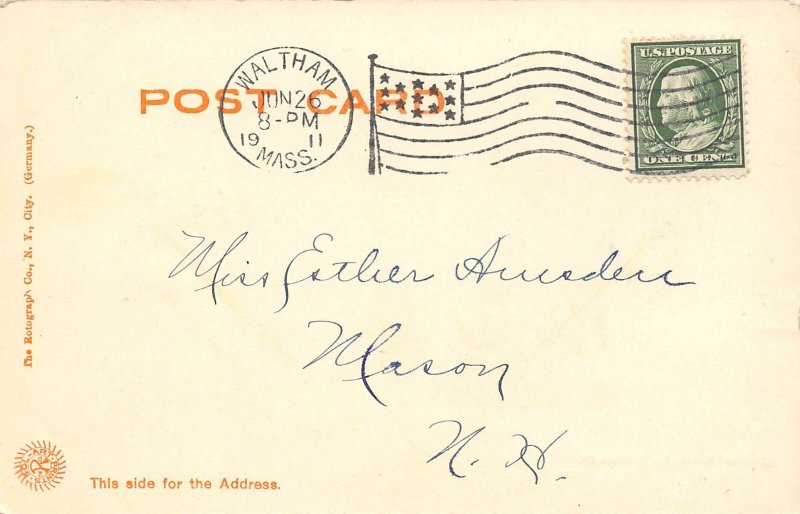 U.S. POSTAGE
ONE CENT
WALTHAM
JUN 26
8-PM
19 11
MASS.
POST CARD
The Rotograph Co., N. Y., City. (Germany.)
Miss Esther Amsden
Mason
N. H.
This side for the Address.